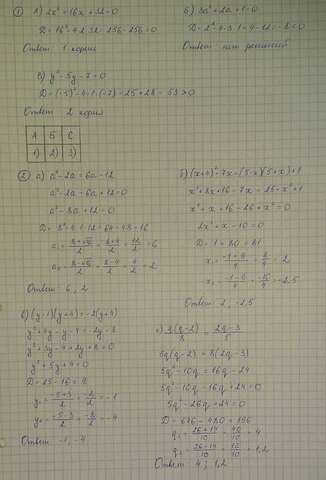 ① А) 2x²+16x+32=0
D=16²-4·2·32=256-256=0
Ответ 1 корень
Б) 3a²+2a+1=0
D=2²-4·3·1=4-12=-8<0
Ответ нет решений
В) y²-5y-7=0
D=(-5)²-4·1·(-7)=25+28=53>0
Ответ 2 корня
А Б С
1) 2) 3)
② а) a²-2a=6a-12
a²-2a-6a+12=0
a²-8a+12=0
D=8²-4·1·12=64-48=16
a₁=(8+√16)/2=(8+4)/2=12/2=6
a₂=(8-√16)/2=(8-4)/2=4/2=2
Ответ 6, 2
б) (x+4)²-7x=(5-x)(5+x)+1
x²+8x+16-7x=25-x²+1
x²+x+16-26+x²=0
2x²+x-10=0
D=1+80=81
x₁=(-1+9)/4=8/4=2
x₂=(-1-9)/4=-10/4=-2,5
Ответ 2, -2,5
в) (y-1)(y+4)=-2(y+4)
y²+4y-y-4=-2y-8
y²+3y-4+2y+8=0
y²+5y+4=0
D=25-16=9
y₁=(-5+3)/2=-2/2=-1
y₂=(-5-3)/2=-8/2=-4
Ответ -1, -4
q(q-2)/8=(2q-3)/5
5q(q-2)=8(2q-3)
5q²-10q=16q-24
5q²-10q-16q+24=0
5q²-26q+24=0
D=676-480=196
q₁=(26+14)/10=40/10=4
q₂=(26-14)/10=12/10=1,2
Ответ 4; 1,2